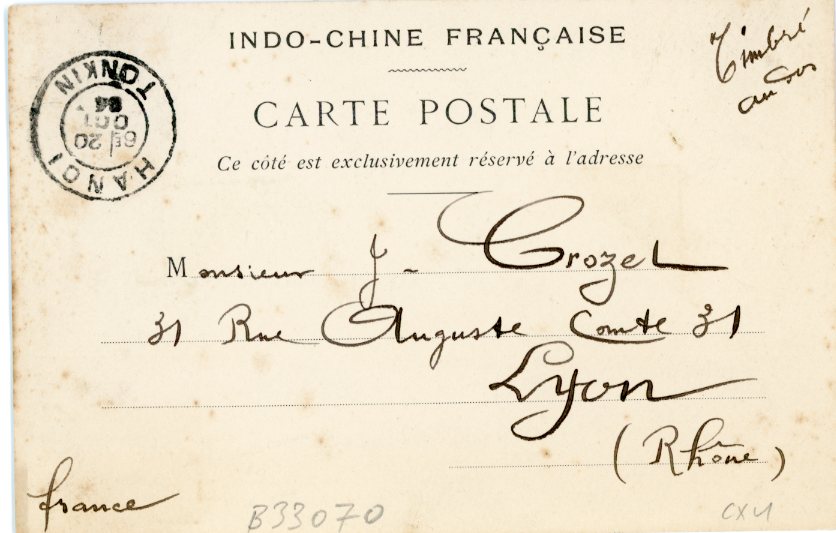 INDO-CHINE FRANÇAISE
Timbré
au dos
CARTE POSTALE
Ce côté est exclusivement réservé à l'adresse
HANOI
20
OCT
04
TONKIN
Monsieur J- Crozet
31 Rue Auguste Comte 31
Lyon
(Rhône)
france
B33070